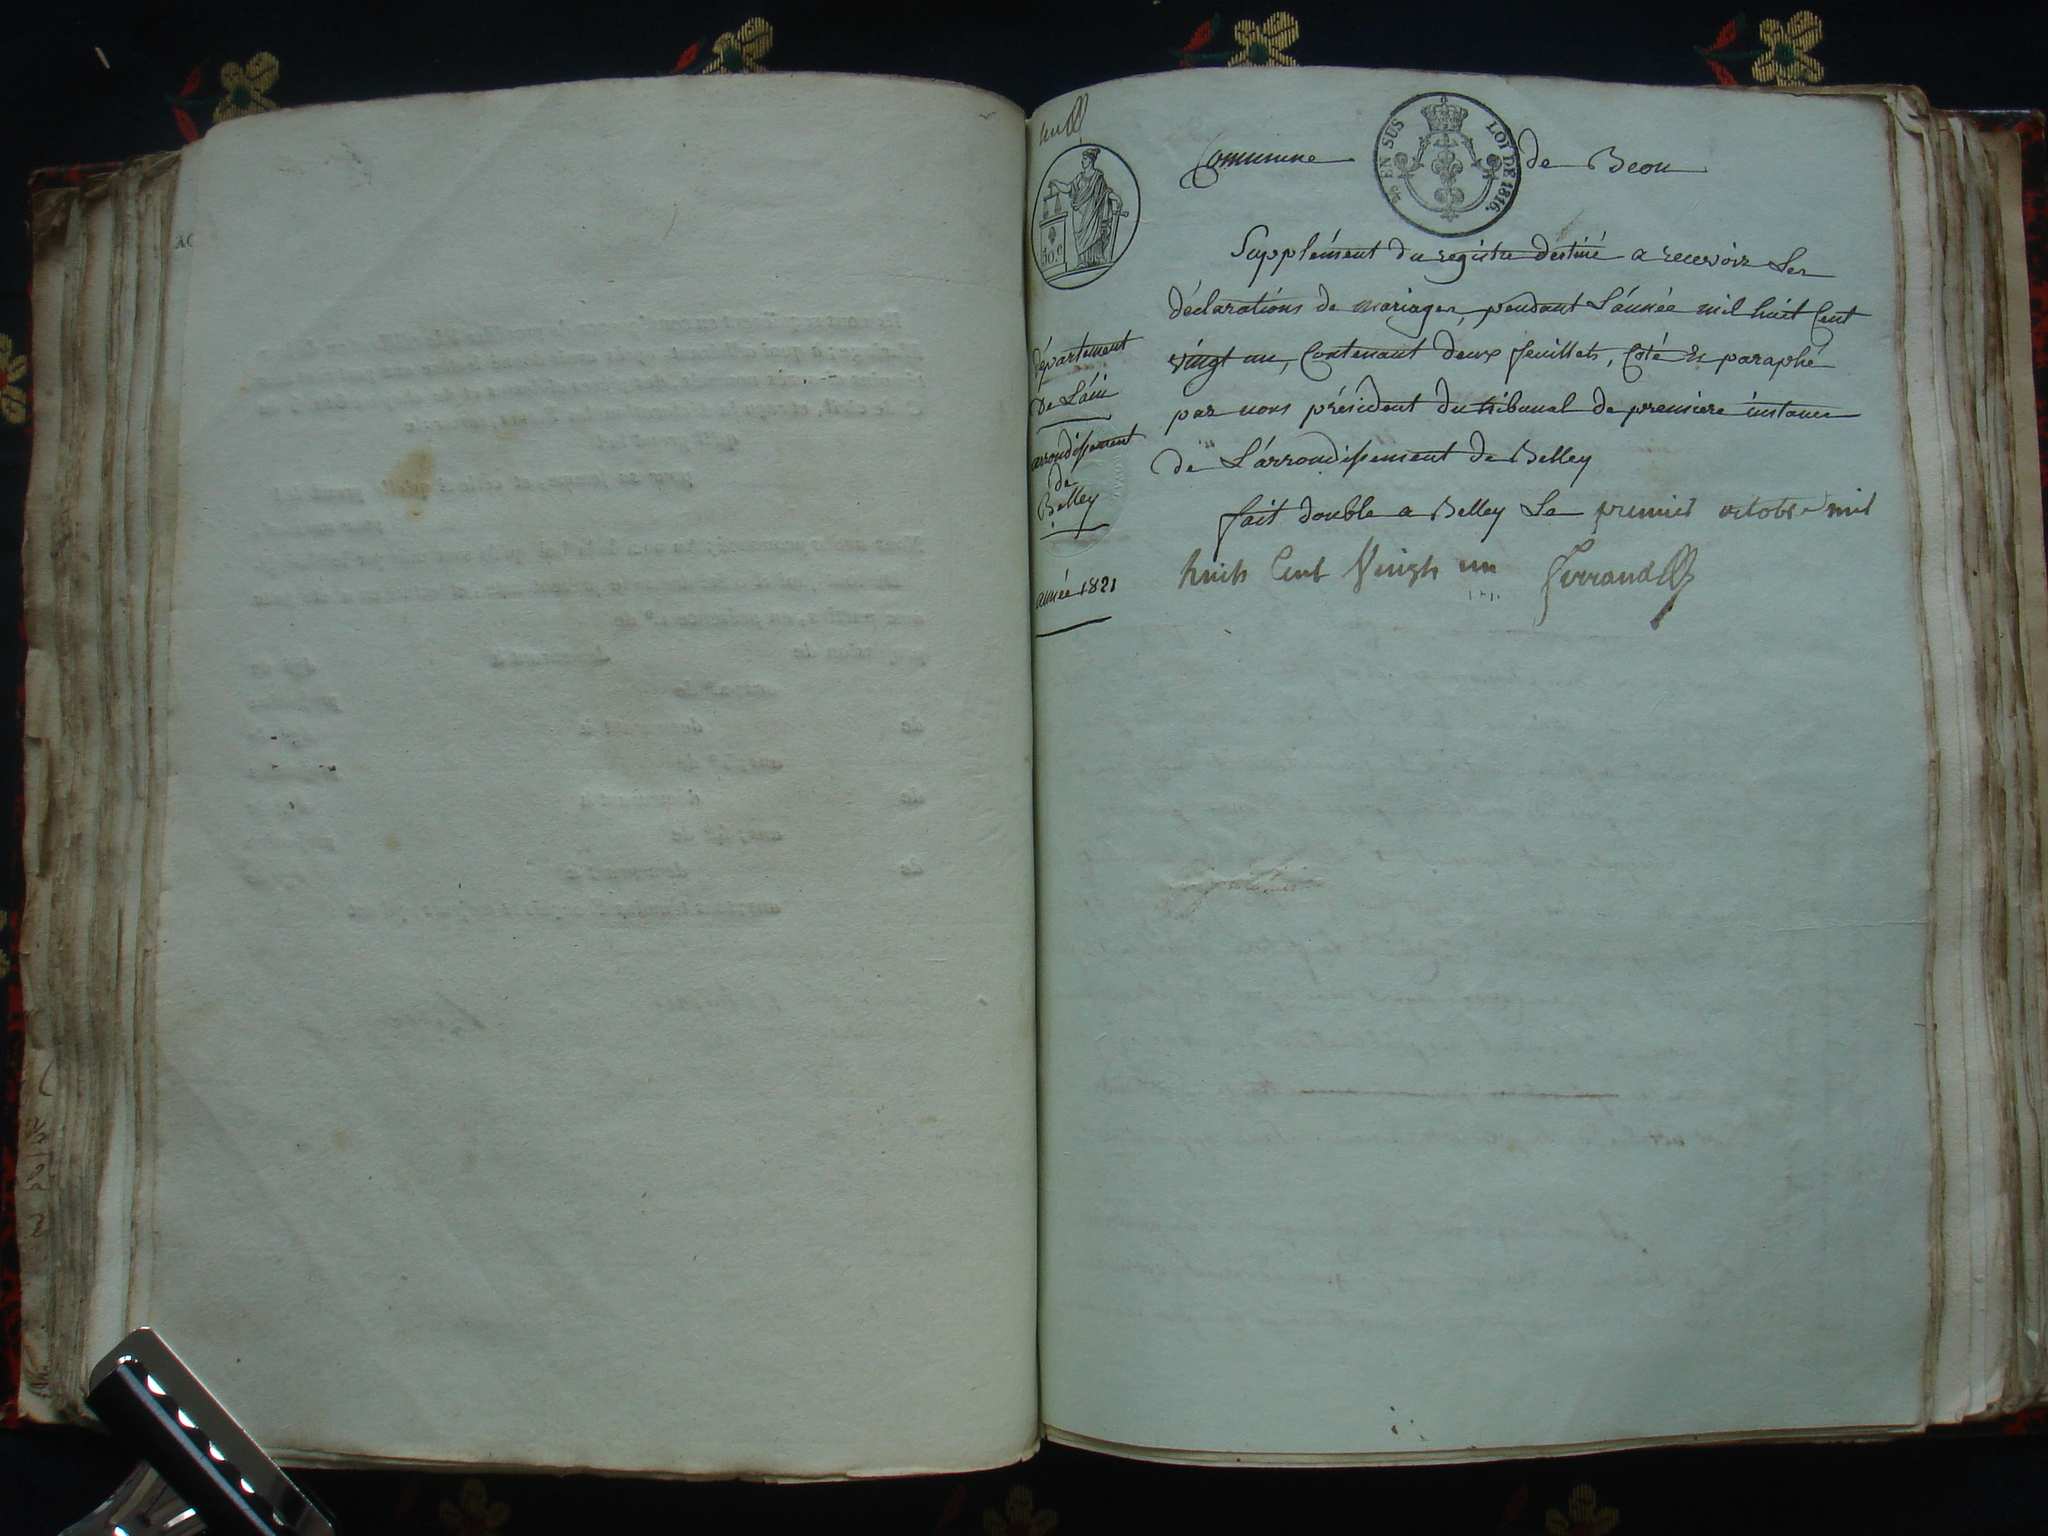 Commune de Beon
EN SUS LOI DE 1816.
50.c
département
De L'áin
arrondissement
de
Belley
année 1821
Supplément du registre destiné a recevoir Les
déclarations de mariages, pendant L'année mil huit Cent
vingt un, Contenant deux feuillets, Coté Et paraphé
par nous président du tribunal de premiere instance
de L'arrondissement de Belley
fait double a Belley Le premier octobre mil
huit Cent Vingt un Ferrand